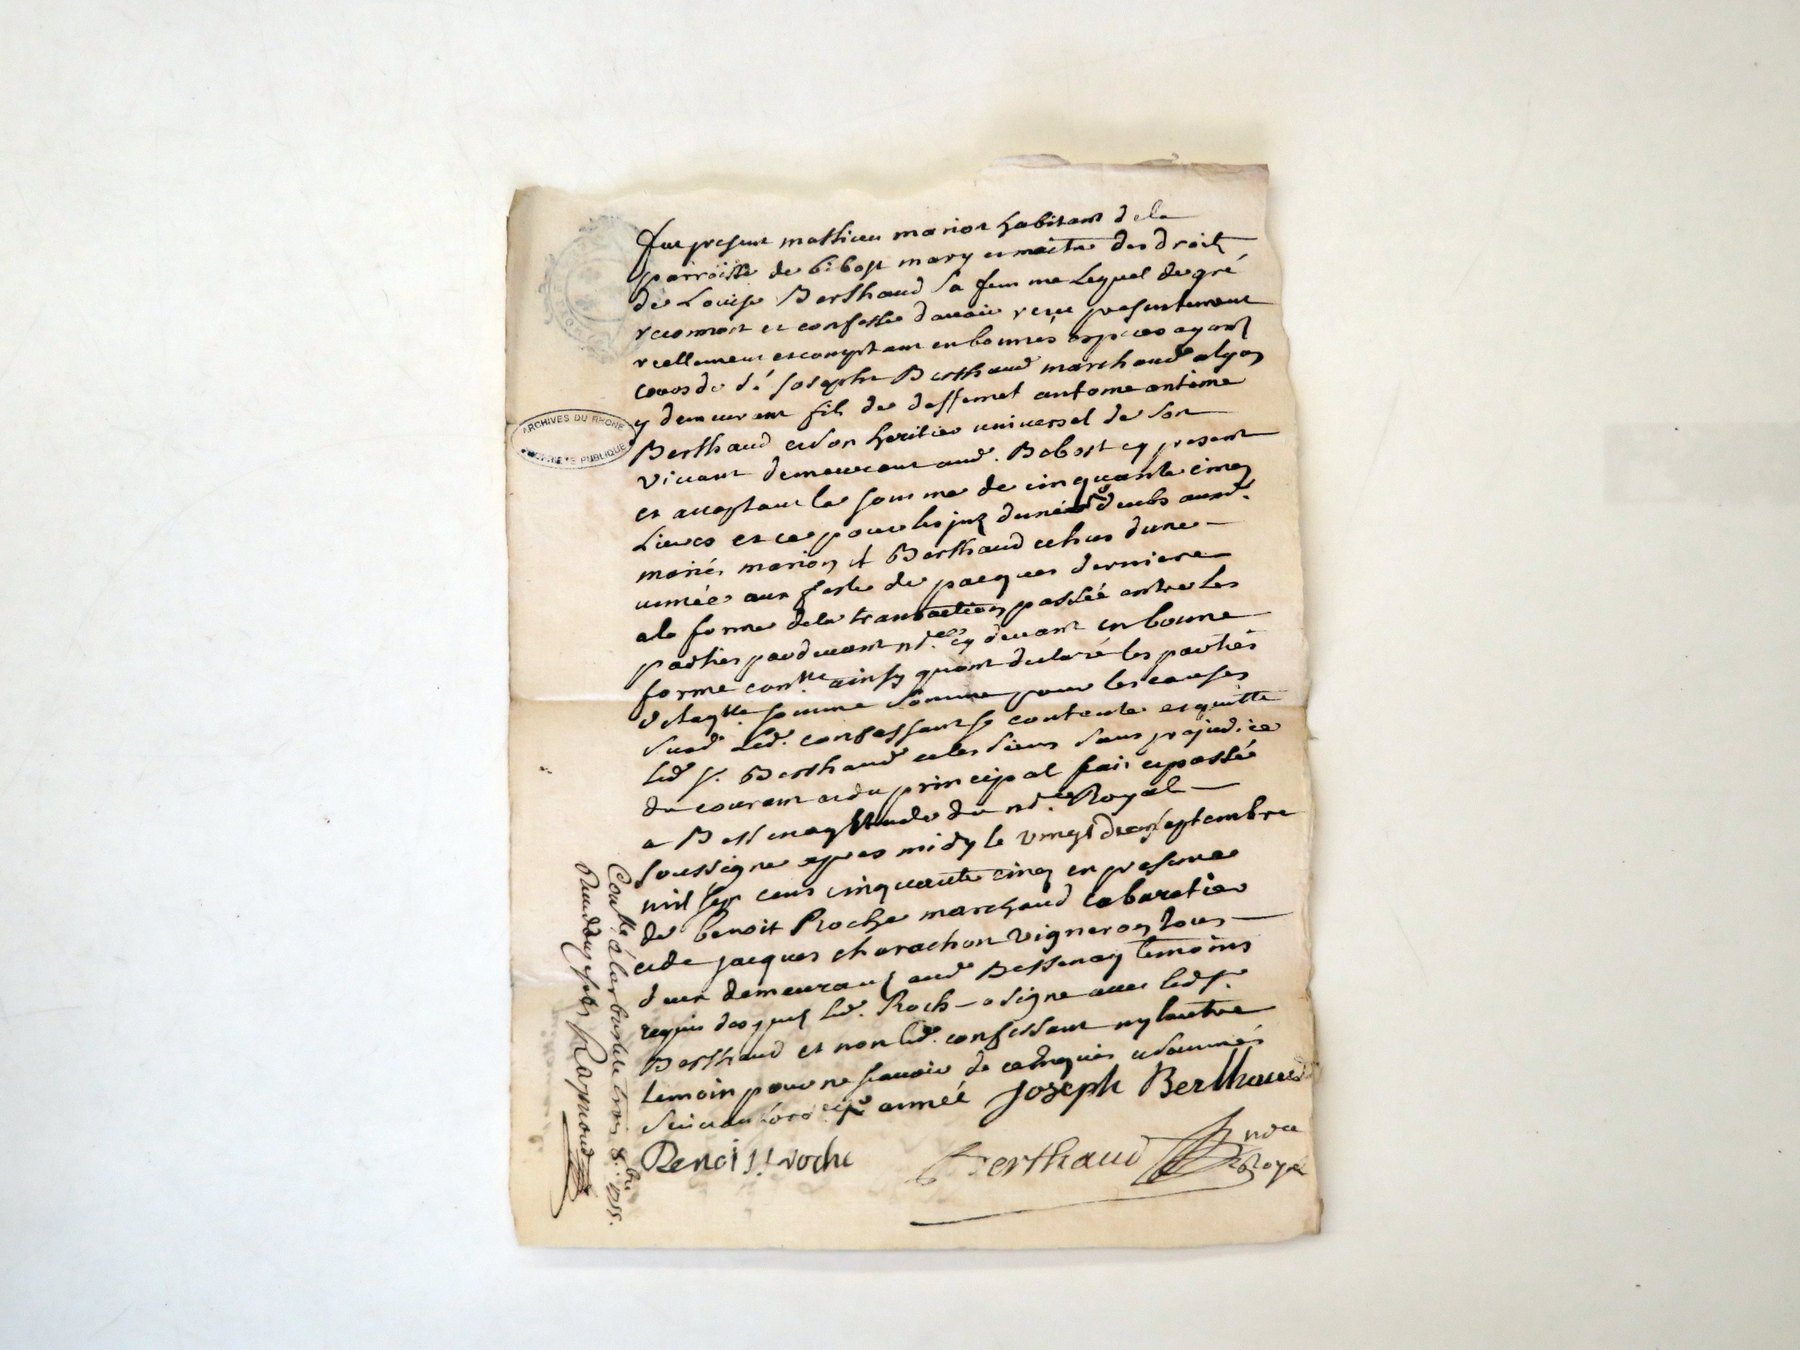 fut present mathieu marion habitant de la
parroisse de bibost mary et maitre des droits
de Louise Berthaud sa femme Lequel de gré
reconnoit et confesse davoir receu presentement
reellement et comptant en bonnes especes ayant
cours de sr Joseph Berthaud marchand a lyon
y demeurant fils de deffunct antoine
Berthaud et son heritier universel de son
vivant demeurant aud. Bibost cy present
et acceptant la somme de cinquante cinq
Livres et ce pour les deubs auxd.
mariés marion et Berthaud echus dune
année aux festes de pacques derniere
a la forme de la transaction passée entre les
parties pardevant nre cy devant en bonne
forme conllée ainsy quont declaré les parties
de laqlle somme pour les causes
susd. Led. confessant se contente et quitte
led sr. Berthaud et les siens sans prejudice
du courant et du principal fait et passé
a Bessenay etude du nre Royal
soussigné apres midy le vingt septembre
mil sept cens cinquante cinq en presence
de benoit Roche marchand cabaretier
et de jacques charachon vigneron tous
deux demeurant aud Bessenay temoins
requis desquels led. Roche a signé avec led sr.
Berthaud et non led. confessant ny lautre
temoin pour ne scavoir de ce enquis et sommés
année Joseph Berthaud
Benoist roche
Berthaud nre
Royal
ARCHIVES DU RHONE
PROPRIETE PUBLIQUE
Conllé a larbresle le trois 8.bre 1755.
Raymond